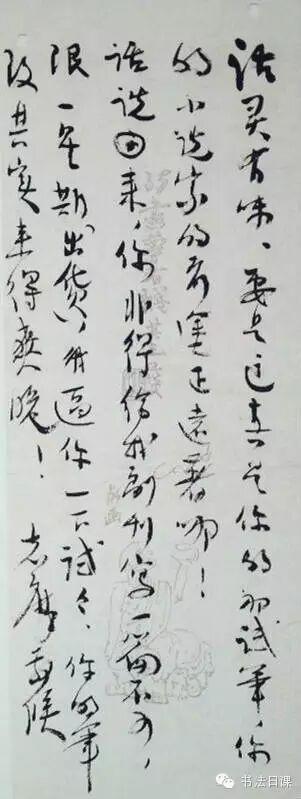 话灵有味、要是这真是你的初试笔，你
的小说家的前途正远着哪！
话说回来，你非得给我副刊写一篇不可，
限一星期出货，再逼你一下试试、你的笔
致其实来得爽脆！
志摩敬候
书法日课